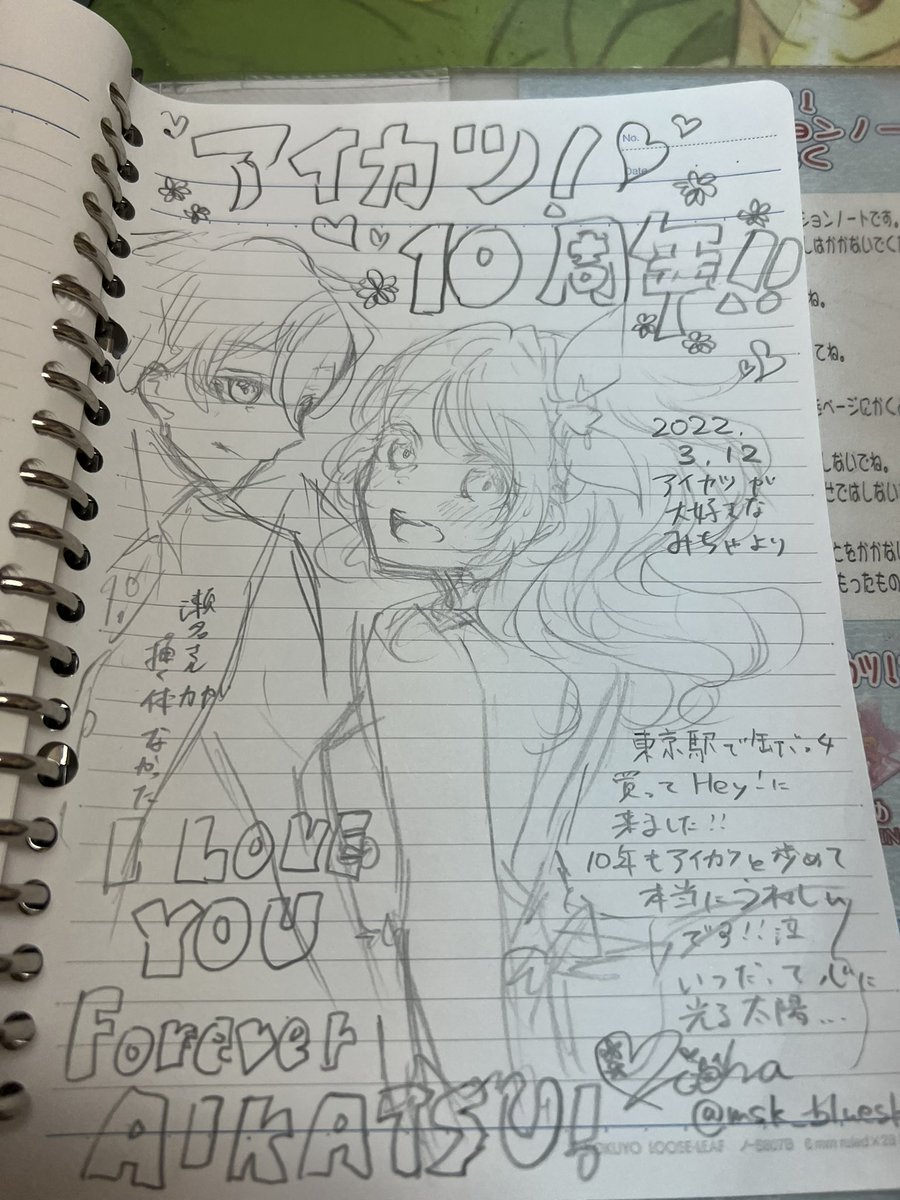 アイカツ!
10周年!!
No.
Date
2022.
3.12
アイカツが
大好きな
みちゃより
瀬名さん
描く体力が
なかった
東京駅で缶バッチ
買ってHey!に
来ました!!
10年もアイカツと歩めて
本当にうれしい
です!!泣
いつだって心に
光る太陽...
I LOVE
YOU
Forever
AIKATSU!
@msk_bluesk
KOKUYO LOOSE-LEAF ノ-S807B 6mm ruled×28
ションノートです。
ね。
てね。
ページにかく
しないでね。
せてはしない
とをかかない
もったもの